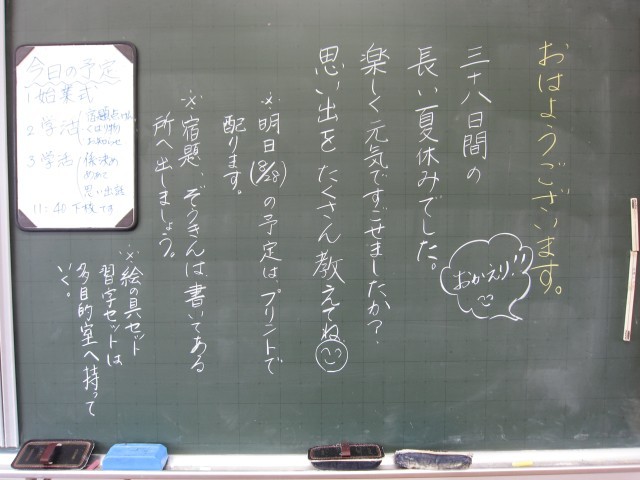 おはようございます。
おかえり!!
三十八日間の
長い夏休みでした。
楽しく元気ですごせましたか?
思い出をたくさん教えてね
※明日(8/28)の予定は、プリントで
配ります。
※宿題、ぞうきんは書いてある
所へ出しましょう。
※絵の具セット
習字セットは
多目的室へ持って
いく。
今日の予定
1 始業式
2 学活
くばり物
お知らせ
3 学活
係決め
めあて
思い出話
11:40 下校です